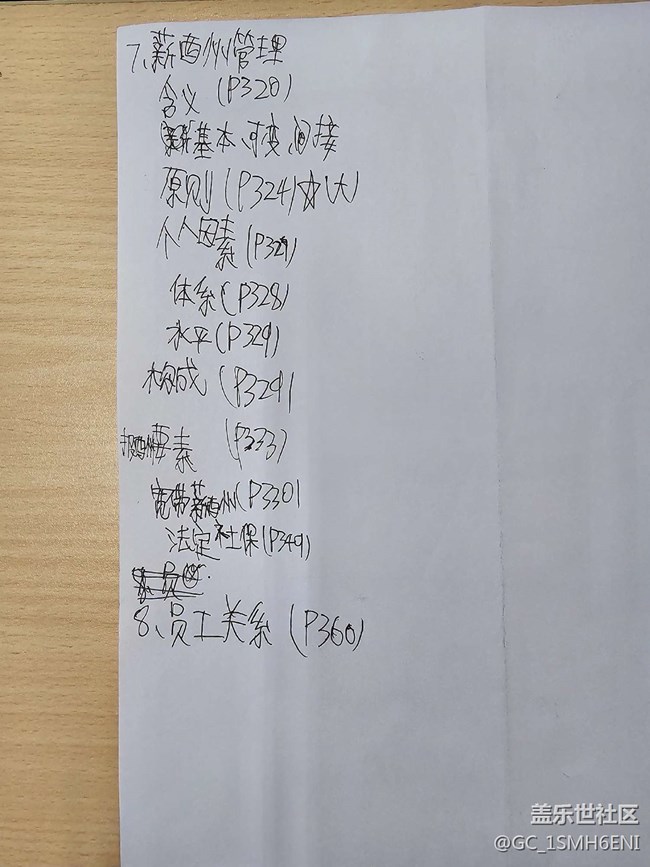 7、薪酬管理
含义 (P320)
基本、可变、间接
原则 (P324) ☆ (大)
个人因素 (P329)
体系 (P328)
水平 (P329)
构成 (P329)
报酬要素 (P333)
宽带薪酬 (P330)
法定社保 (P349)
8、员工关系 (P360)
盖乐世社区
@GC_1SMH6ENI